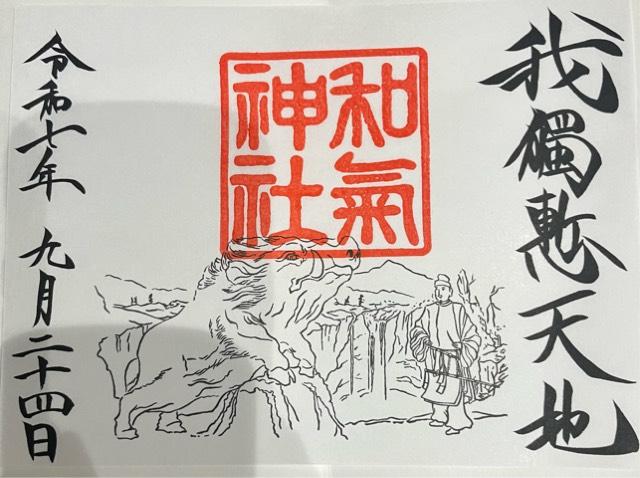 我獨慙天地
和氣
神社
令和七年 九月二十四日